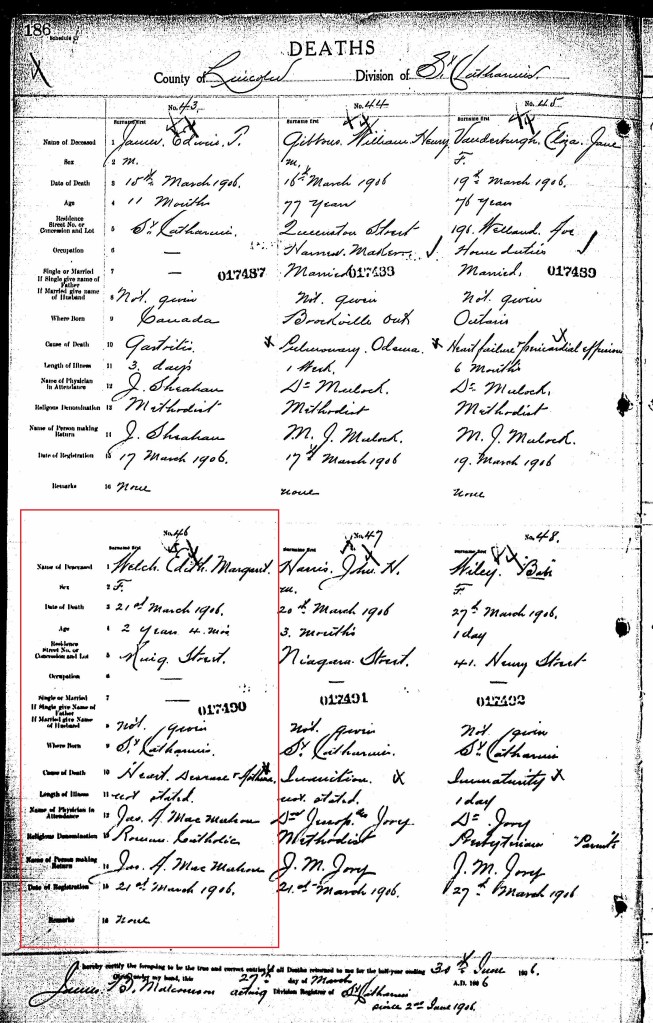 186
Schedule C
DEATHS
County of Lincoln Division of St Catharines.
No. 43 No. 44 No. 45
Surname first Surname first Surname first
Name of Deceased 1 James. Edwin. T. Gibbons. William. Henry Vanderburgh. Eliza. Jane
Sex 2 m. m. F.
Date of Death 3 15th March 1906. 16th March 1906 19th March 1906.
Age 4 11 Months 77 Years 76 Years
Residence
Street No. or
Concession and Lot 5 St Catharines. Queenston Street 196. Welland. Ave
Occupation 6 — Harness. Maker. Home duties
Single or Married 7 — 017487 Married 017488 Married, 017489
If Single give name of
Father
If Married give name
of Husband 8 Not. given Not. given Not. given
Where Born 9 Canada Brockville Ont Ontario
Cause of Death 10 Gastritis. Pulmonary. Odema. Heart failure pericardial effusion
Length of Illness 11 3. days 1 Week. 6 Months
Name of Physician
in Attendance 12 J. Sheahan Dr Mulock. Dr. Mulock.
Religious Denomination 13 Methodist Methodist Methodist
Name of Person making
Return 14 J. Sheahan M. J. Mulock. M. J. Mulock.
Date of Registration 15 17 March 1906. 17th March 1906 19. March 1906
Remarks 16 None none none
No. 46 No. 47 No. 48.
Surname first Surname first Surname first
Name of Deceased 1 Welch. Edith. Margaret. Harris. John. H. Wiley. Bab
Sex 2 F. m. F
Date of Death 3 21st March 1906. 20th March 1906. 27th March 1906.
Age 4 2 Years 4. mos 3. months 1 day
Residence
Street No. or
Concession and Lot 5 Street. Niagara Street. 41. Henry Street
Occupation 6 — — —
Single or Married 7 — 017490 017491 017492
If Single give Name of
Father
If Married give Name
of Husband 8 not. given not. given Not given
Where Born 9 St. Catharines. St Catharines. St Catharines
Cause of Death 10 Heart. Disease & Inanition. Immaturity
Length of Illness 11 not stated. not. stated. 1 day
Name of Physician
in Attendance 12 Jas. A. Mac Mahon Jory Dr Jory
Religious Denomination 13 Roman Catholic Methodist Presbyterian "Parents
Name of Person making
Return 14 Jas. A. Mac Mahon J. M. Jory J. M. Jory
Date of Registration 15 21st March 1906. 21st March 1906. 27th March 1906
Remarks 16 None
I hereby certify the foregoing to be the true and correct entries of all Deaths returned to me for the half-year ending 30th June 1906.
Given under my hand, this 27th day of March A.D. 1906
James. D. Malcomson acting Division Registrar of St Catharines
since 2nd June 1906.